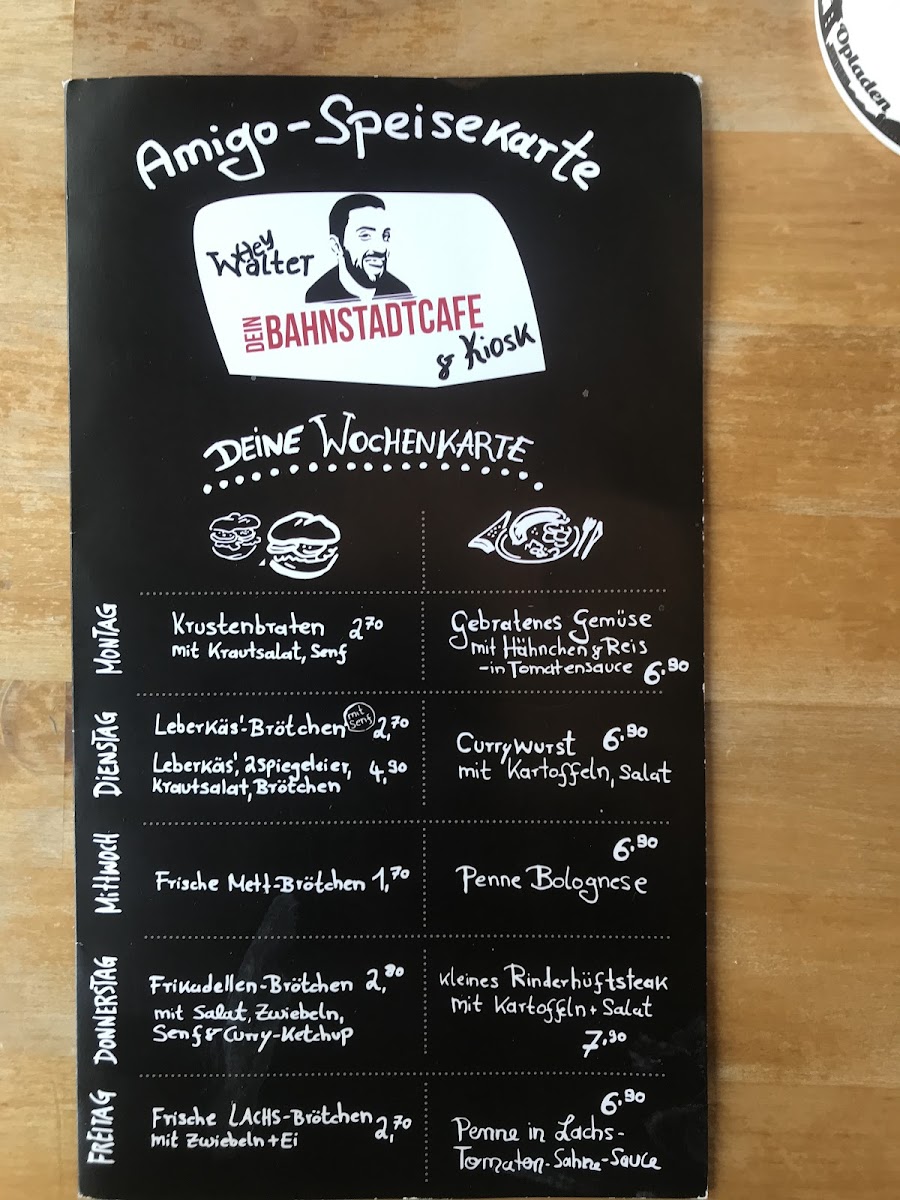 Opladen
Amigo-Speisekarte
Hey
Walter
DEIN BAHNSTADTCAFE
& Kiosk
DEINE WOCHENKARTE
MONTAG
Krustenbraten 2,70
mit Krautsalat, Senf
Gebratenes Gemüse
mit Hähnchen & Reis
-in Tomatensauce 6.90
DIENSTAG
Leberkäs'-Brötchen mit Senf 2,70
Leberkäs', 2 Spiegeleier, 4,90
Krautsalat, Brötchen
Currywurst 6.90
mit Kartoffeln, Salat
MITTWOCH
Frische Mett-Brötchen 1,70
6.90
Penne Bolognese
DONNERSTAG
Frikadellen-Brötchen 2,80
mit Salat, Zwiebeln,
Senf & Curry-Ketchup
kleines Rinderhüftsteak
mit Kartoffeln + Salat
7,90
FREITAG
Frische LACHS-Brötchen 2,70
mit Zwiebeln + Ei
6.90
Penne in Lachs-
Tomaten-Sahne-Sauce